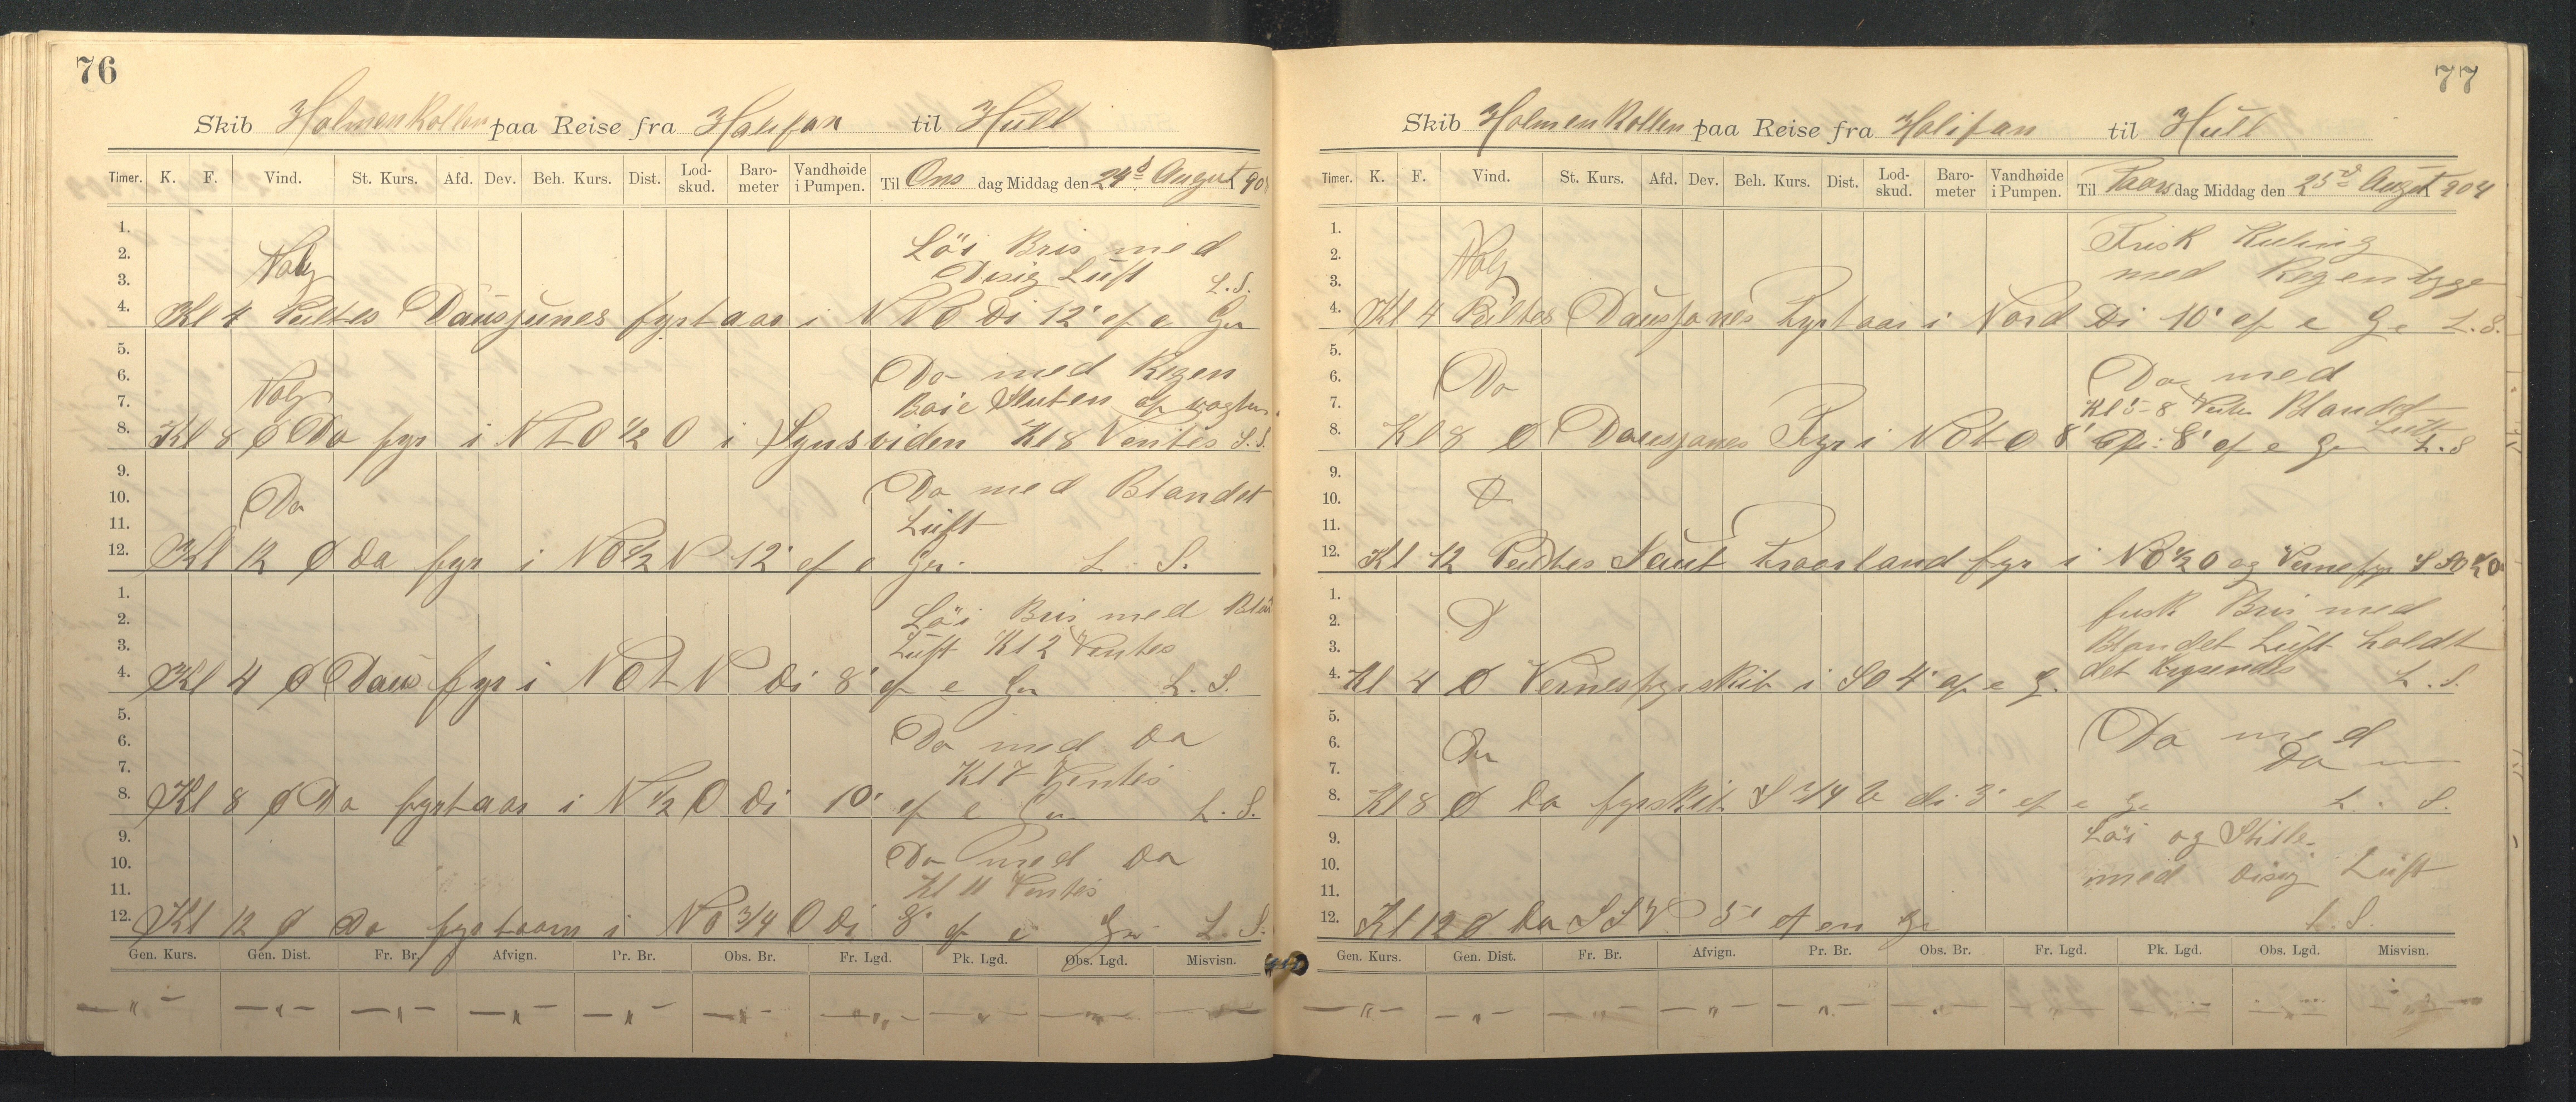 76
Skib Holmenkollen paa Reise fra Halifax til Hull
Timer. K. F. Vind. St. Kurs. Afd. Dev. Beh. Kurs. Dist. Lod-skud. Baro-meter Vandhøide i Pumpen. Til Ons dag Middag den 24d August 90
1.
2. Löi Bris med
3. Disig Luft L.S.
4. Kl 4 fyrtaar i NNO Di 12' af e Gn
5.
6. Do med Regen
7. Baie
8. Kl 8 Ø Do fyr i NTO ½ O i Synsviden Kl 8 Ventes S.S.
9.
10. Do Do med Blandet
11. Luft
12. Kl 12 Ø Do fyr i NO ½ N 12' af e Gn. L. S.
1.
2. Löi Bris med
3. Luft Kl 2 Ventes
4. Kl 4 Ø Daus fyr i NOTN Di 8' af e Gn L. S.
5.
6. Do med Do
7. Kl 7 Ventes
8. Kl 8 Ø Do fyrtaar i N ½ O Di 10' af e Gn L. S.
9.
10. Do med Do
11. Kl 11 Ventes
12. Kl 12 Ø Do fyrtaarn i NO ¾ O Di 8' af e Gn L. S.
Gen. Kurs. Gen. Dist. Fr. Br. Afvign. Pr. Br. Obs. Br. Fr. Lgd. Pk. Lgd. Obs. Lgd. Misvisn.
77
Skib Holmenkollen paa Reise fra Halifax til Hull
Timer. K. F. Vind. St. Kurs. Afd. Dev. Beh. Kurs. Dist. Lod-skud. Baro-meter Vandhøide i Pumpen. Til Tors dag Middag den 25d Augst 904
1. Frisk Kuling
2.
3. med Regenbyge
4. Kl 4 Peiltes fyrtaar i Nord Di 10' af e G e L. S.
5.
6. Do Do med
7. Kl 5-8 Blandet Luft
8. Kl 8 Ø Fyr i NOTO 8' 8' af e Gn L. S
9.
10.
11.
12. Kl 12 Peiltes fyr i NO ½ O og
1. frisk Bris med
2.
3. Blandet Luft holdt
4. Kl 4 Ø Vernesfyrskib i SO 4' af e G. det krysendes L. S.
5.
6. Do Do med
7. Do
8. Kl 8 Ø Do fyrskib S ¾ di 3' af e Ge L. S.
9. Löi og Stille
10.
11. med Disig Luft
12. Kl 12 Ø Do SSV 5' af en Ge L. S.
Gen. Kurs. Gen. Dist. Fr. Br. Afvign. Pr. Br. Obs. Br. Fr. Lgd. Pk. Lgd. Obs. Lgd. Misvisn.